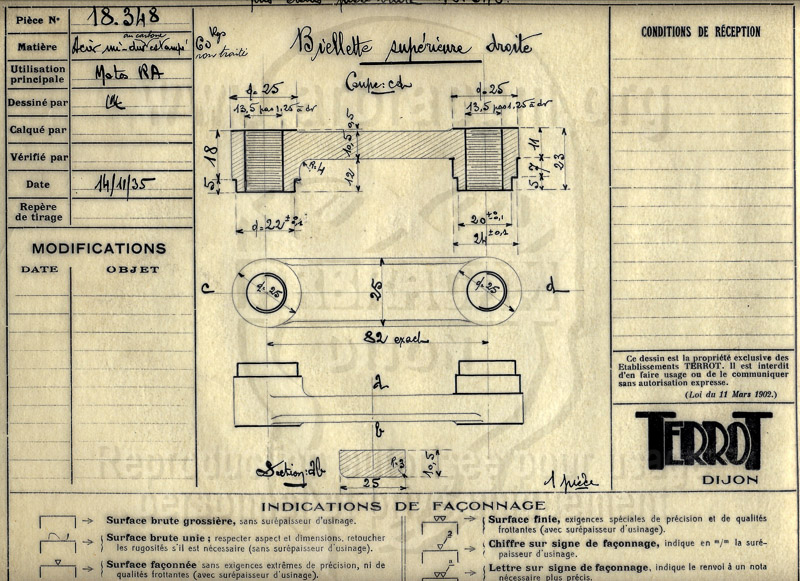 Pièce N° 18.348
Matière Acier mi-dur estampé
au carbone
60 Kgs
non traité
Utilisation
principale
Motos RA
Dessiné par
Calqué par
Vérifié par
Date 14/11/35
Repère
de tirage
MODIFICATIONS
DATE OBJET
Biellette supérieure droite
Coupe: cd
d=25
13,5 pas 1,25 à dr
d=25
13,5 pas 1,25 à dr
18
5
9,5
10,5
12
R=4
11
7
5
23
d=22
20
24
c
d=25
25
d=25
d
82 exact
a
b
Section: ab
R=3
10,5
25
1 pièce
CONDITIONS DE RÉCEPTION
Ce dessin est la propriété exclusive des
Etablissements TERROT. Il est interdit
d'en faire usage ou de le communiquer
sans autorisation expresse.
(Loi du 11 Mars 1902.)
TERROT
DIJON
INDICATIONS DE FAÇONNAGE
Surface brute grossière, sans surépaisseur d'usinage.
Surface brute unie ; respecter aspect et dimensions, retoucher
les rugosités s'il est nécessaire (sans surépaisseur d'usinage).
Surface façonnée sans exigences extrêmes de précision, ni de
qualités frottantes (avec surépaisseur d'usinage).
Surface finie, exigences spéciales de précision et de qualités
frottantes (avec surépaisseur d'usinage).
Chiffre sur signe de façonnage, indique en m/m la suré-
paisseur d'usinage.
Lettre sur signe de façonnage, indique le renvoi à un nota
nécessaire plus précis.